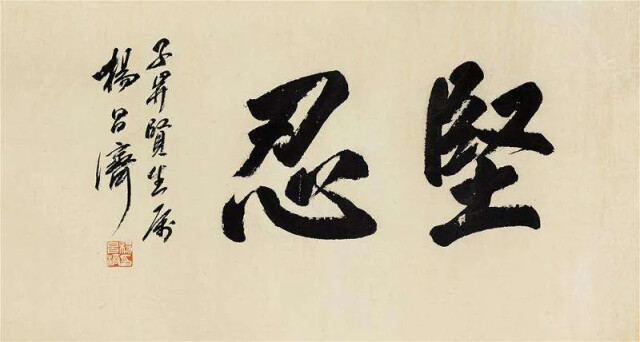 堅忍
子昇賢生屬
楊昌濟